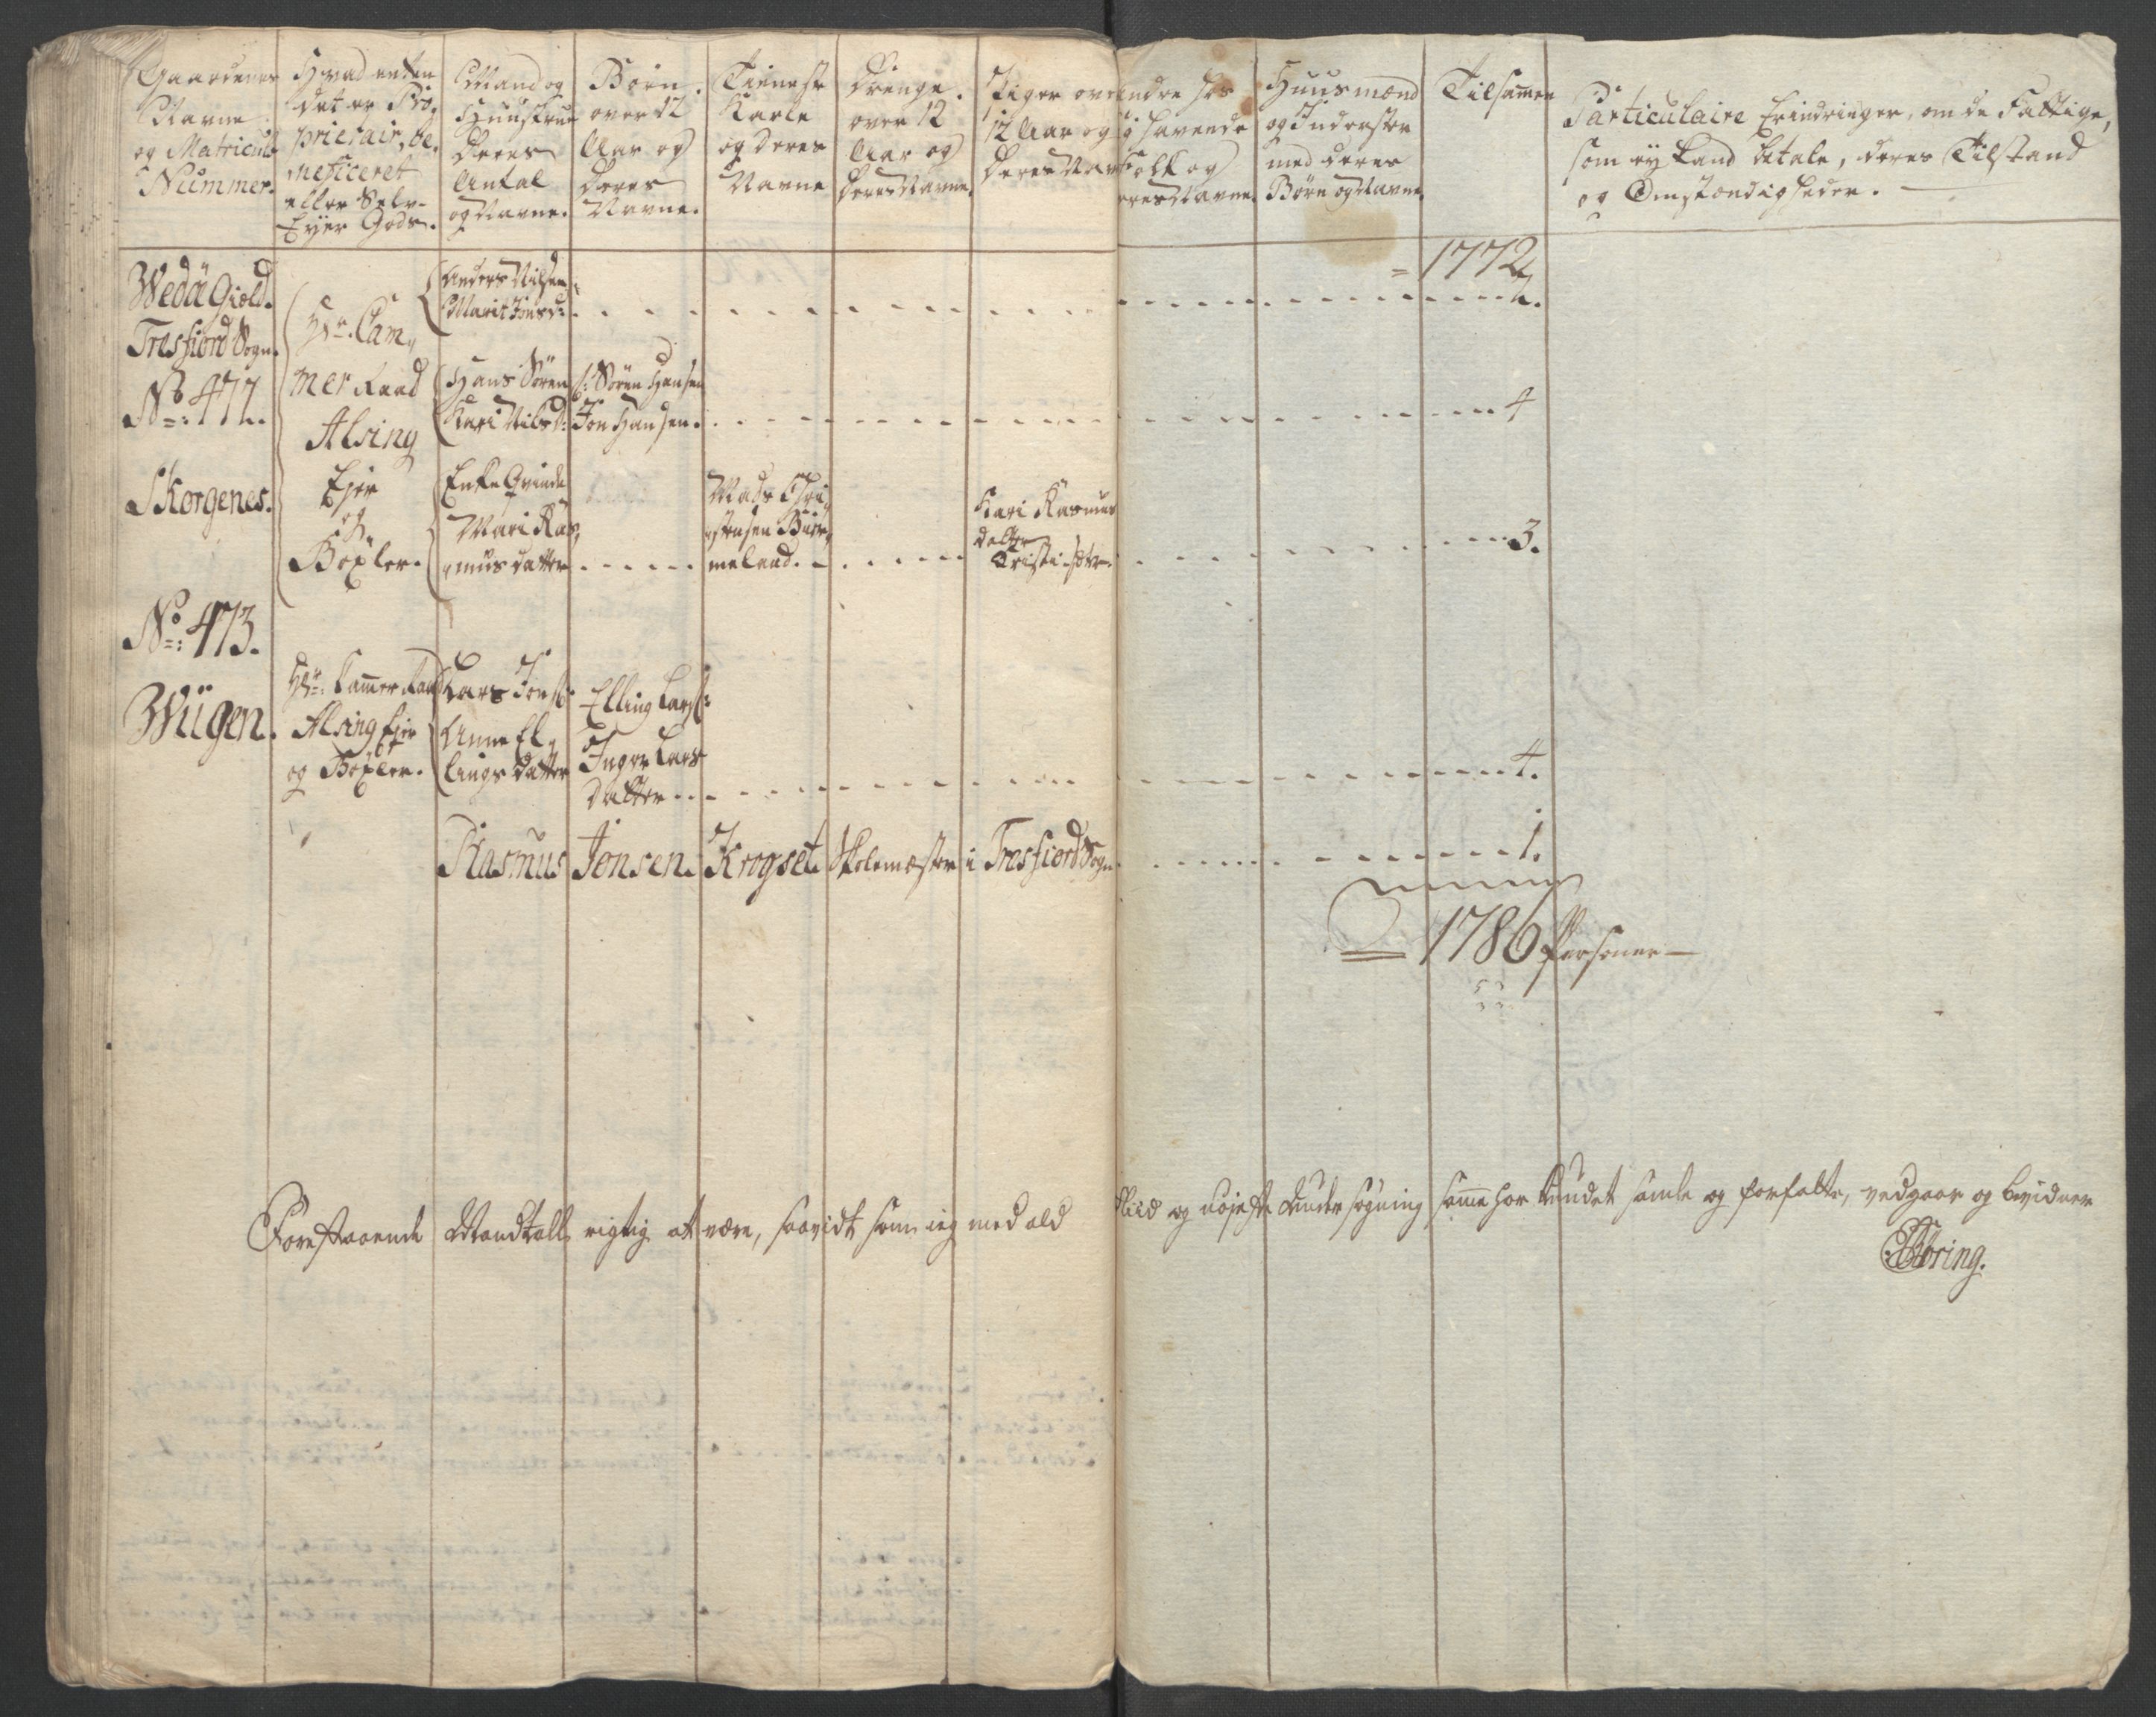 Gaardenes
Navne
og Matricul
Nummer.
Hvad enten
det er Pro,
prietair, be,
neficeret
eller Selv-
Ejer Gods.
Mand og
Huustrue
deres
Antal
og Navne.
Børn
over 12
Aar og
deres
Navne.
Tieneste
Karle
og deres
Navne
Drenge
over 12
Aar og
deres Navne.
Piger over
12 Aar og
deres Navne
Andre hos
sig havende
Folk og
deres Navne
Huusmænd
og Inderster
med deres
Børn og Navne.
Tilsammen
Particulaire Erindringer, om de Fattige,
som ey kand betale, deres Tilstand
og Omstændigheder. —
= 1772
Wedøe Giæld.
Tresfiord Sogn.
No: 471.
Skorgenes.
Hr. Cam,,
mer Raad
Alsing
Ejer
og
Boxler.
Anders Nilsen
Marit Jonsd:
2.
Hans Søren
Kari Nilsd:
S: Søren Hansen
Jon Hansen.
4
Enke Qvinde
Mari Ras,
musdatter
Mads Chri,
stensen Buer,
meland.
Kari Rasmus
datter
3.
No: 473.
Wiigen.
Hr: Cammer Raad
Alsing Ejer
og Boxler.
Lars Jons:
Anne El,
lings datter
Elling Lars:
Inger Lars
datter
4.
Rasmus Jonsen Krogset Skolemæster i Tresfiord Sogn
1.
= 1786 Personer —
Forestaaende Mandtall rigtig at være, saavidt som ieg med all
Fliid og nøjeste Undersøgning samme har kundet samle og forfatte, vedgaar og bevidner